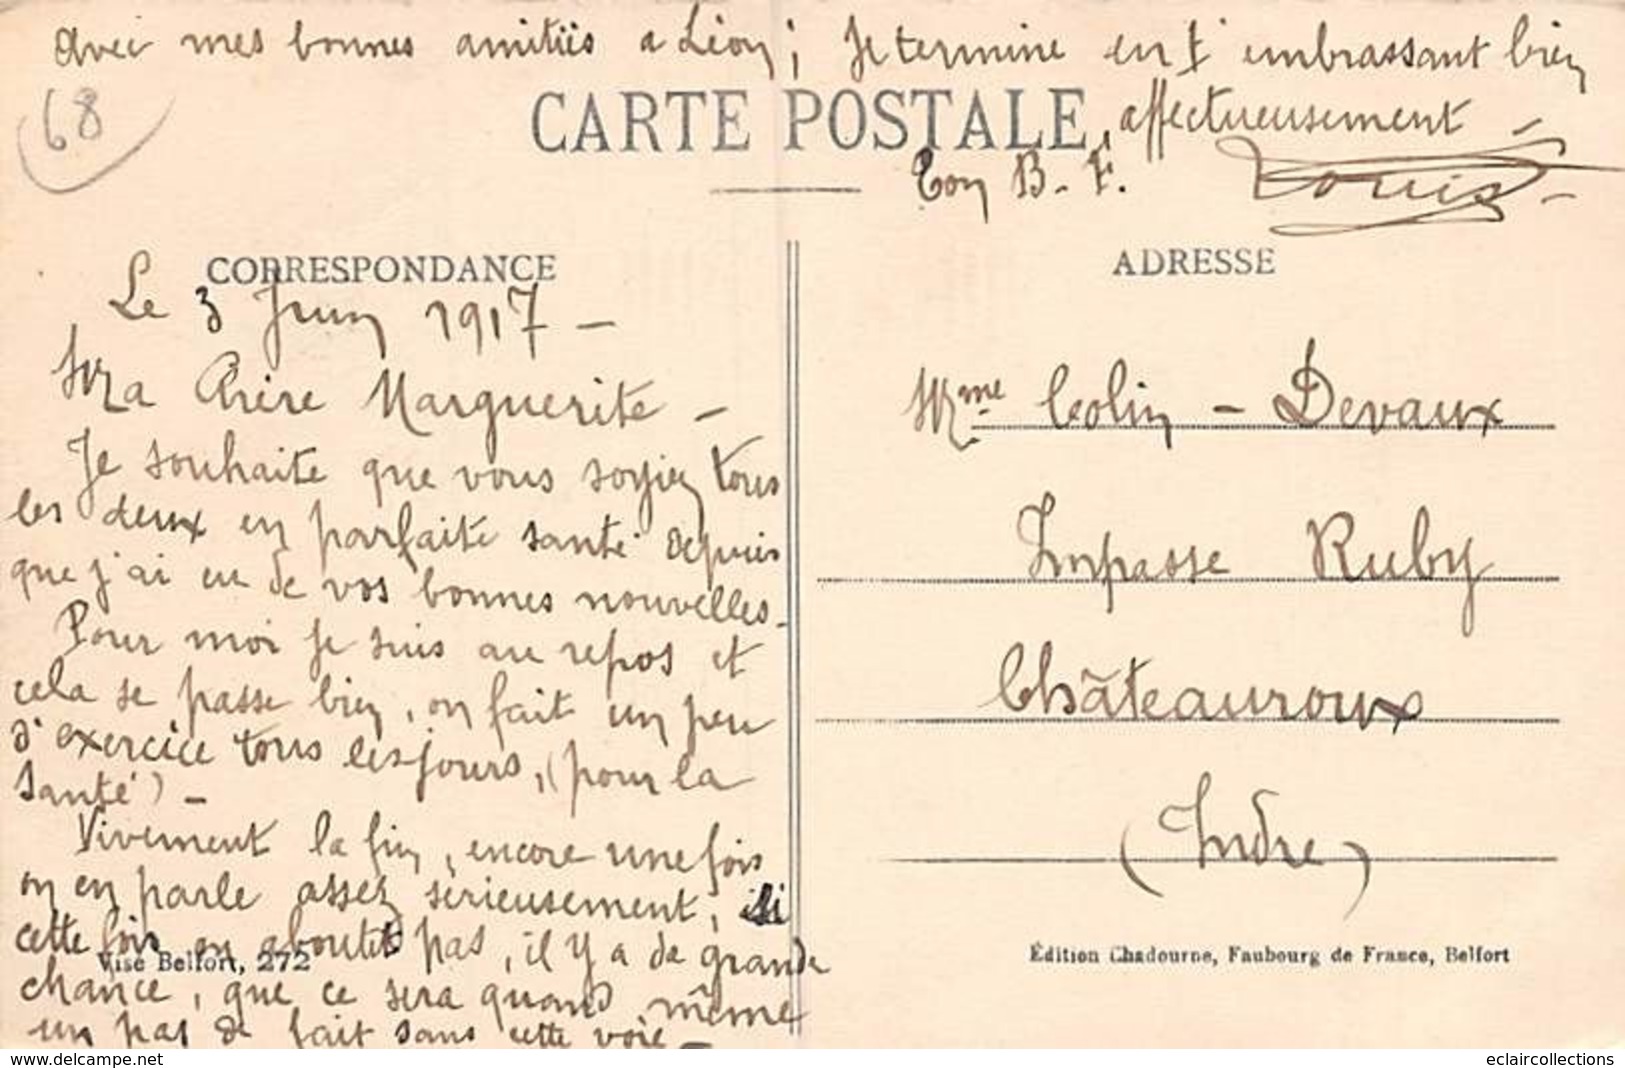 avec mes bonnes amitiés a Léon ; Je termine en t'embrassant bien
affectueusement -
CARTE POSTALE
Ton B. F. Louis -
68
CORRESPONDANCE
Le 3 Juin 1917 -
Ma Chère Marguerite -
Je souhaite que vous soyiez tous
les deux en parfaite santé depuis
que j'ai eu de vos bonnes nouvelles -
Pour moi je suis au repos et
cela se passe bien, on fait un peu
d'exercice tous les jours, (pour la
santé) -
Vivement la fin, encore une fois
on en parle assez sérieusement, si
cette fois on aboutit pas, il y a de grande
chance, que ce sera quand même
un pas de fait sans cette voie -
Visé Belfort, 272
ADRESSE
Mme Colin - Devaux
Impasse Ruby
Châteauroux
(Indre)
Édition Chadourne, Faubourg de France, Belfort
www.delcampe.net
eclaircollections